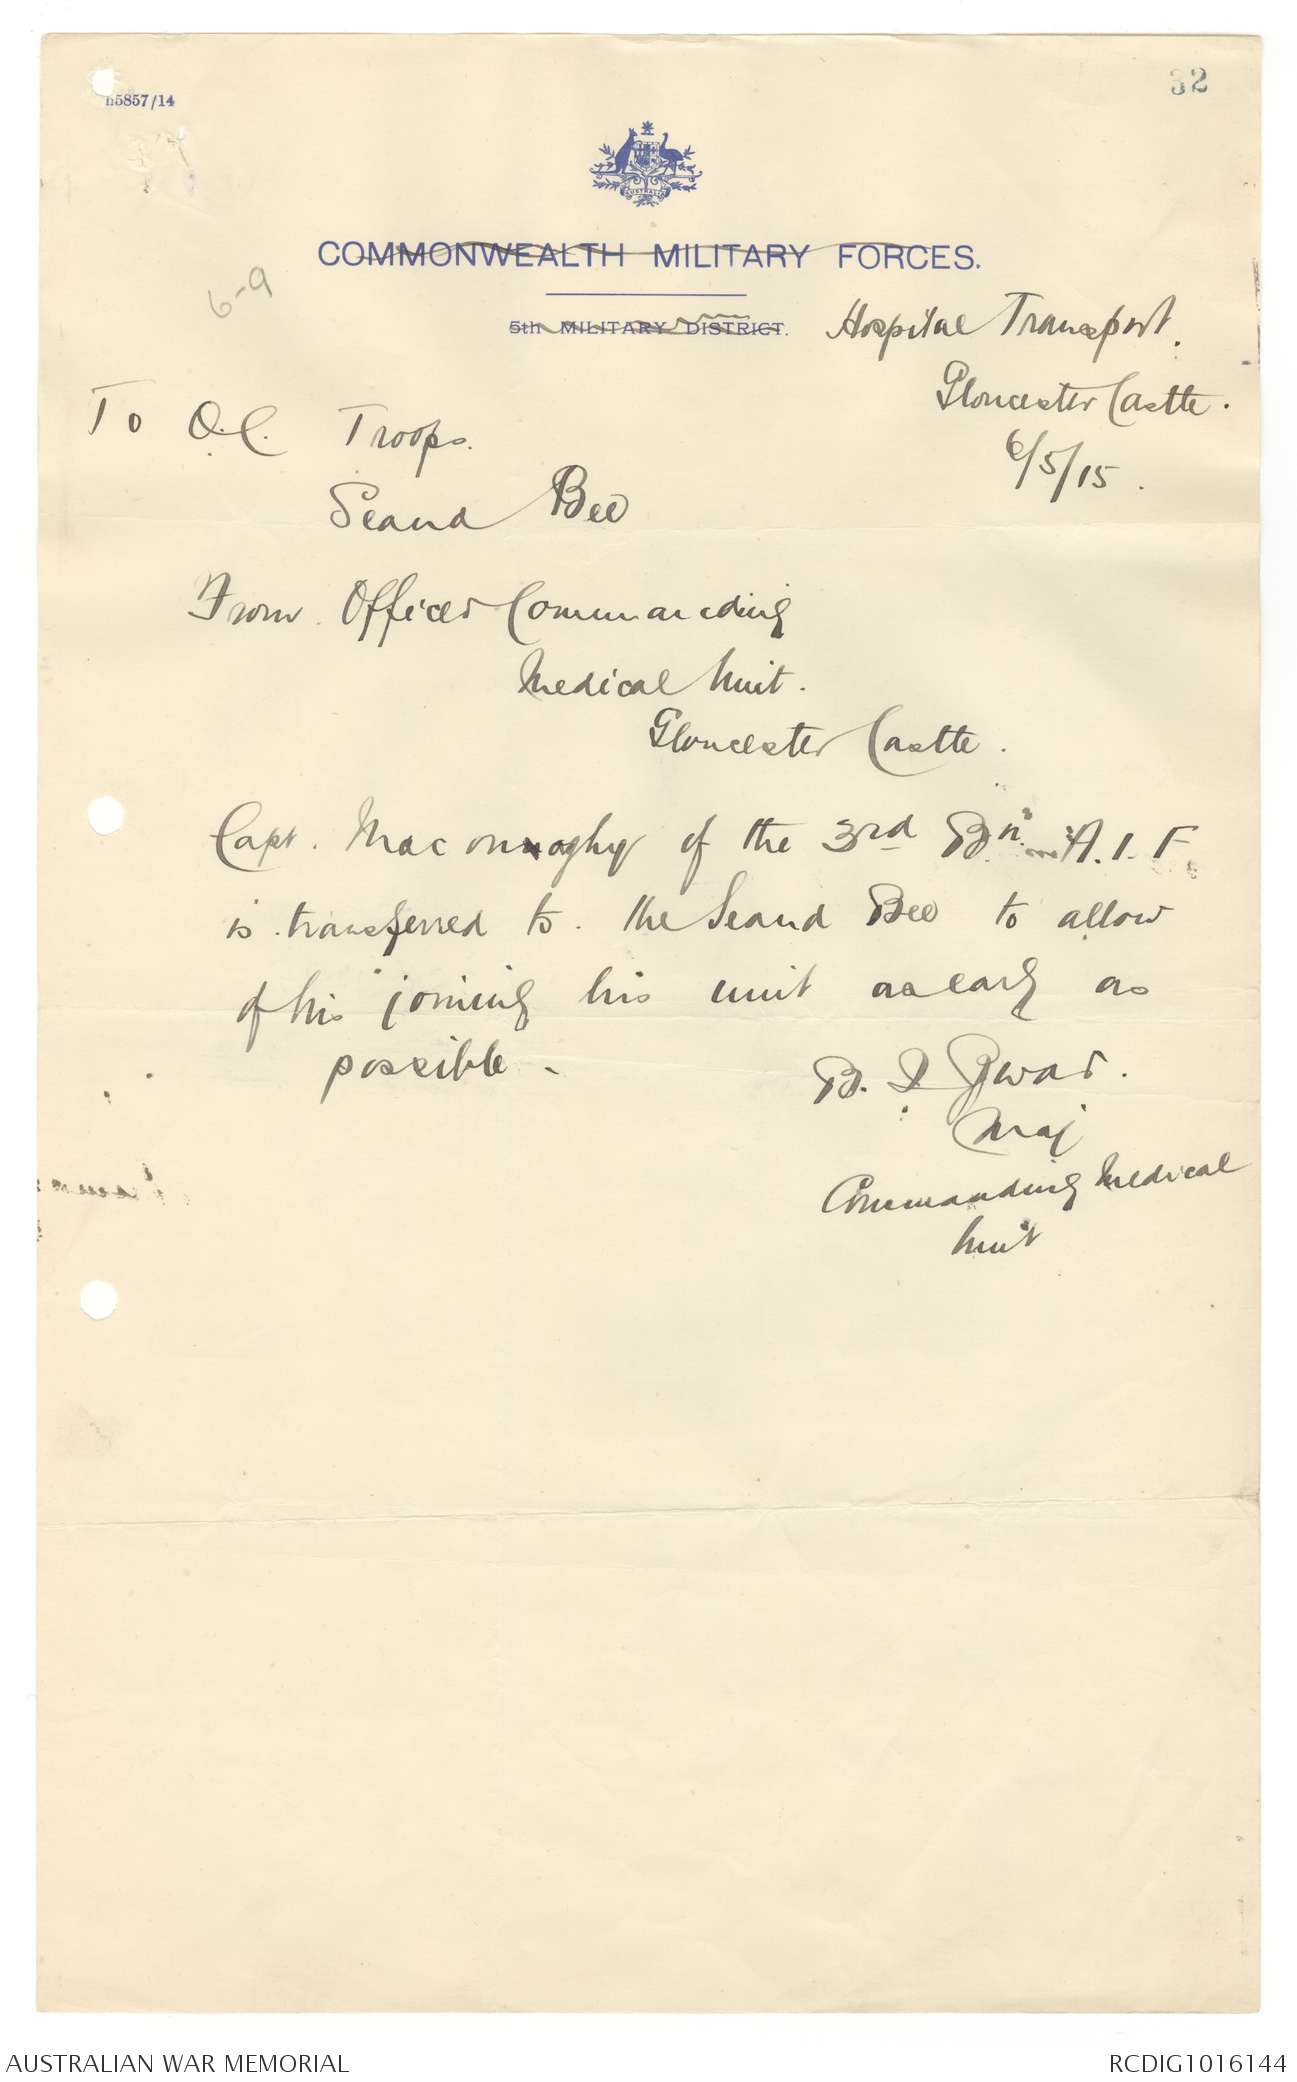 n5857/14
32
AUSTRALIA
COMMONWEALTH MILITARY FORCES.
6-9
5th MILITARY DISTRICT.
Hospital Transport.
Gloucester Castle.
6/5/15.
To O.C. Troops.
Seand Bee
From Officer Commanding
Medical Unit.
Gloucester Castle.
Capt. Maconaghy of the 3rd Bn. A.I.F
is transferred to the Seand Bee to allow
of his joining his unit as early as
possible -
B. I Zwar.
Maj
Commanding Medical
Unit
AUSTRALIAN WAR MEMORIAL
RCDIG1016144